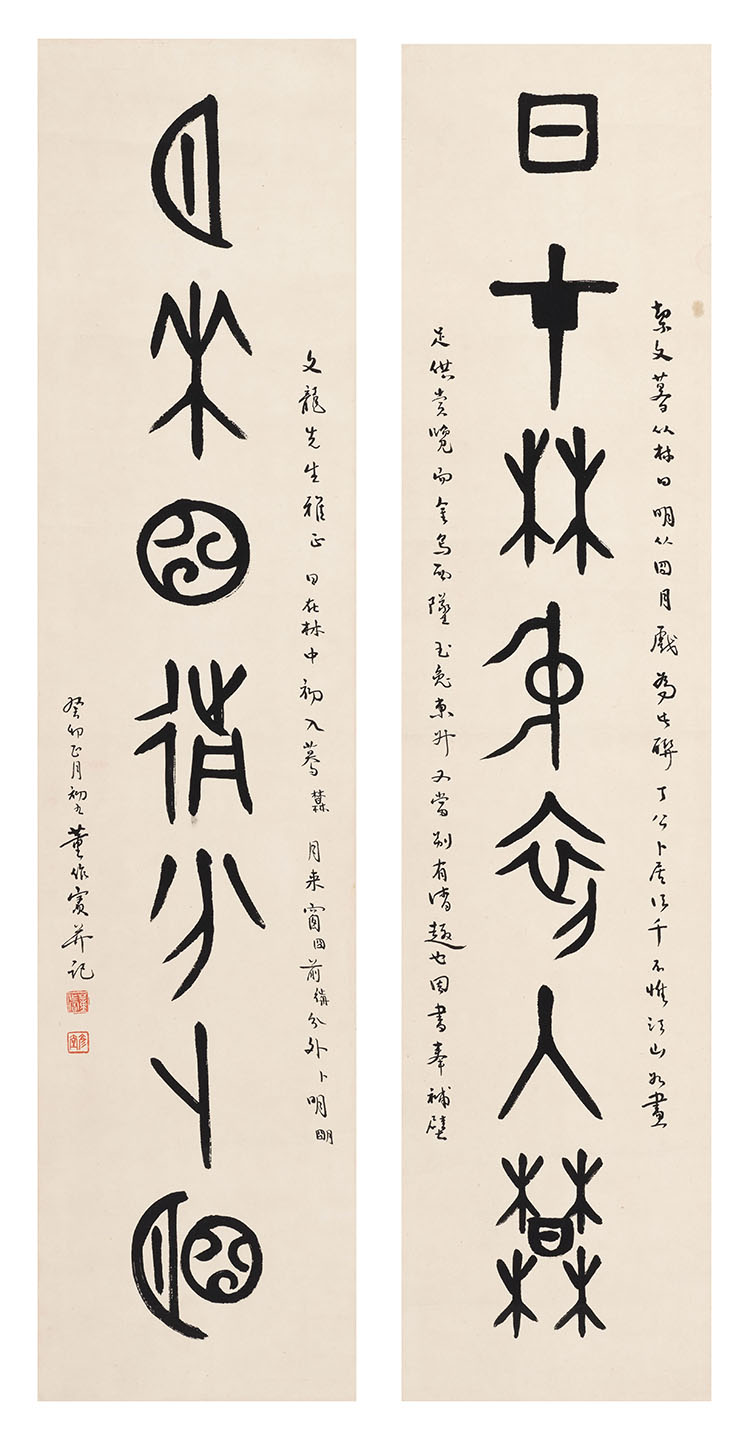 日才林中初入莫
契文暮从林日明从囧月戲為此聯丁公卜居不惟江山如畫
足供賞覽而金烏西墜玉兔東升又當別有清趣也因書奉補壁
月來囧前分卜朙
文龍先生雅正 日在林中初入暮 月来窗囧前分外卜明朙
癸卯正月初九董作賓并記
董作賓
彥堂